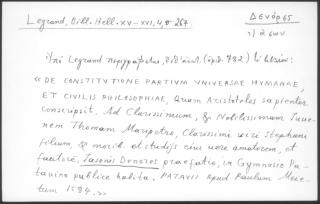 Legrand, Bibl. Hell. XV-XVI, 4, σ 267
Δενόρ 65
«DE CONSTITVTIONE PARTIVM VNIVERSAE HVMANAE,
ET CIVILIS PHILOSOPHIAE, Quam Aristoteles sapienter
conscripsit, Ad Clarissimum, & Nobilissimum Iuve-
nem Thomam Maripetro, Clarissimi viri Stephani
filium, & morib. et studijs eius vere amatorem, et
fautorē, Iasonis Denores praefatio, in Gymnasio Pa-
tavino publice habita. PATAVII Apud Paulum Meie-
tum 1584.»